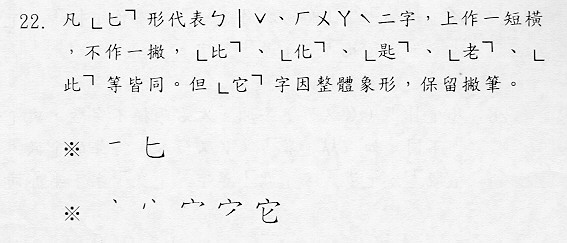 22. 凡「匕」形代表ㄅㄧˇ、ㄏㄨㄚˋ二字，上作一短橫
，不作一撇，「比」、「化」、「匙」、「老」、「
此」等皆同。但「它」字因整體象形，保留撇筆。
※ ㇐ 匕
※ 丶 丷 宀 宀 它